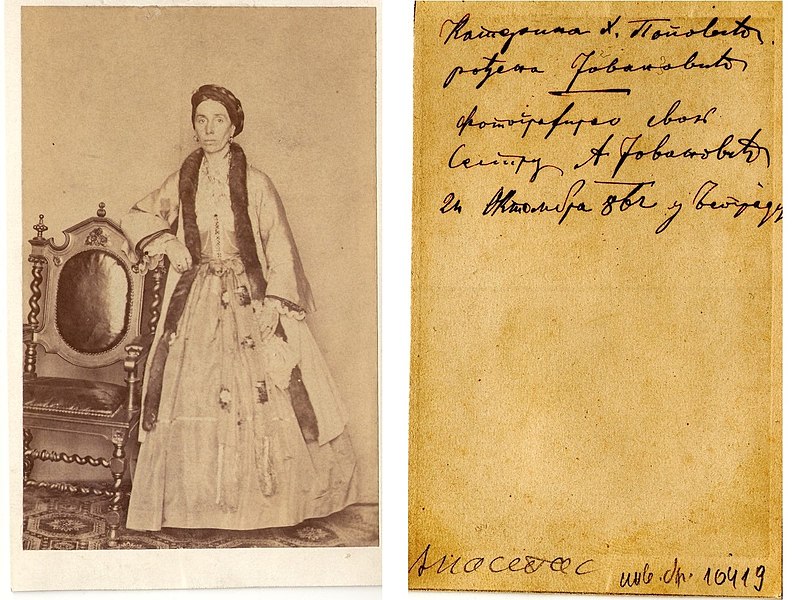 Катерина Х. Поповић
рођена Јовановић
фотографисао своју
Сестру А Јовановић
24 Октомбра 862 у Београду
Анастас
инв. бр. 10419